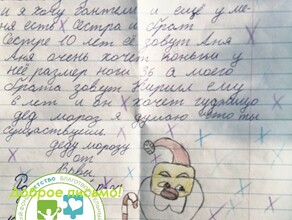 и я хочу гантели и еще у ме
ня есть сестра и брат
Сестре 10 лет её зовут Аня
Аня очень хочет коньки у
неё размер ноги 36 а моего
брата зовут Кирилл ему
8 лет и он хочет
дед мороз я думаю что ты
существуешь.
деду морозу
от
доброе письмо!